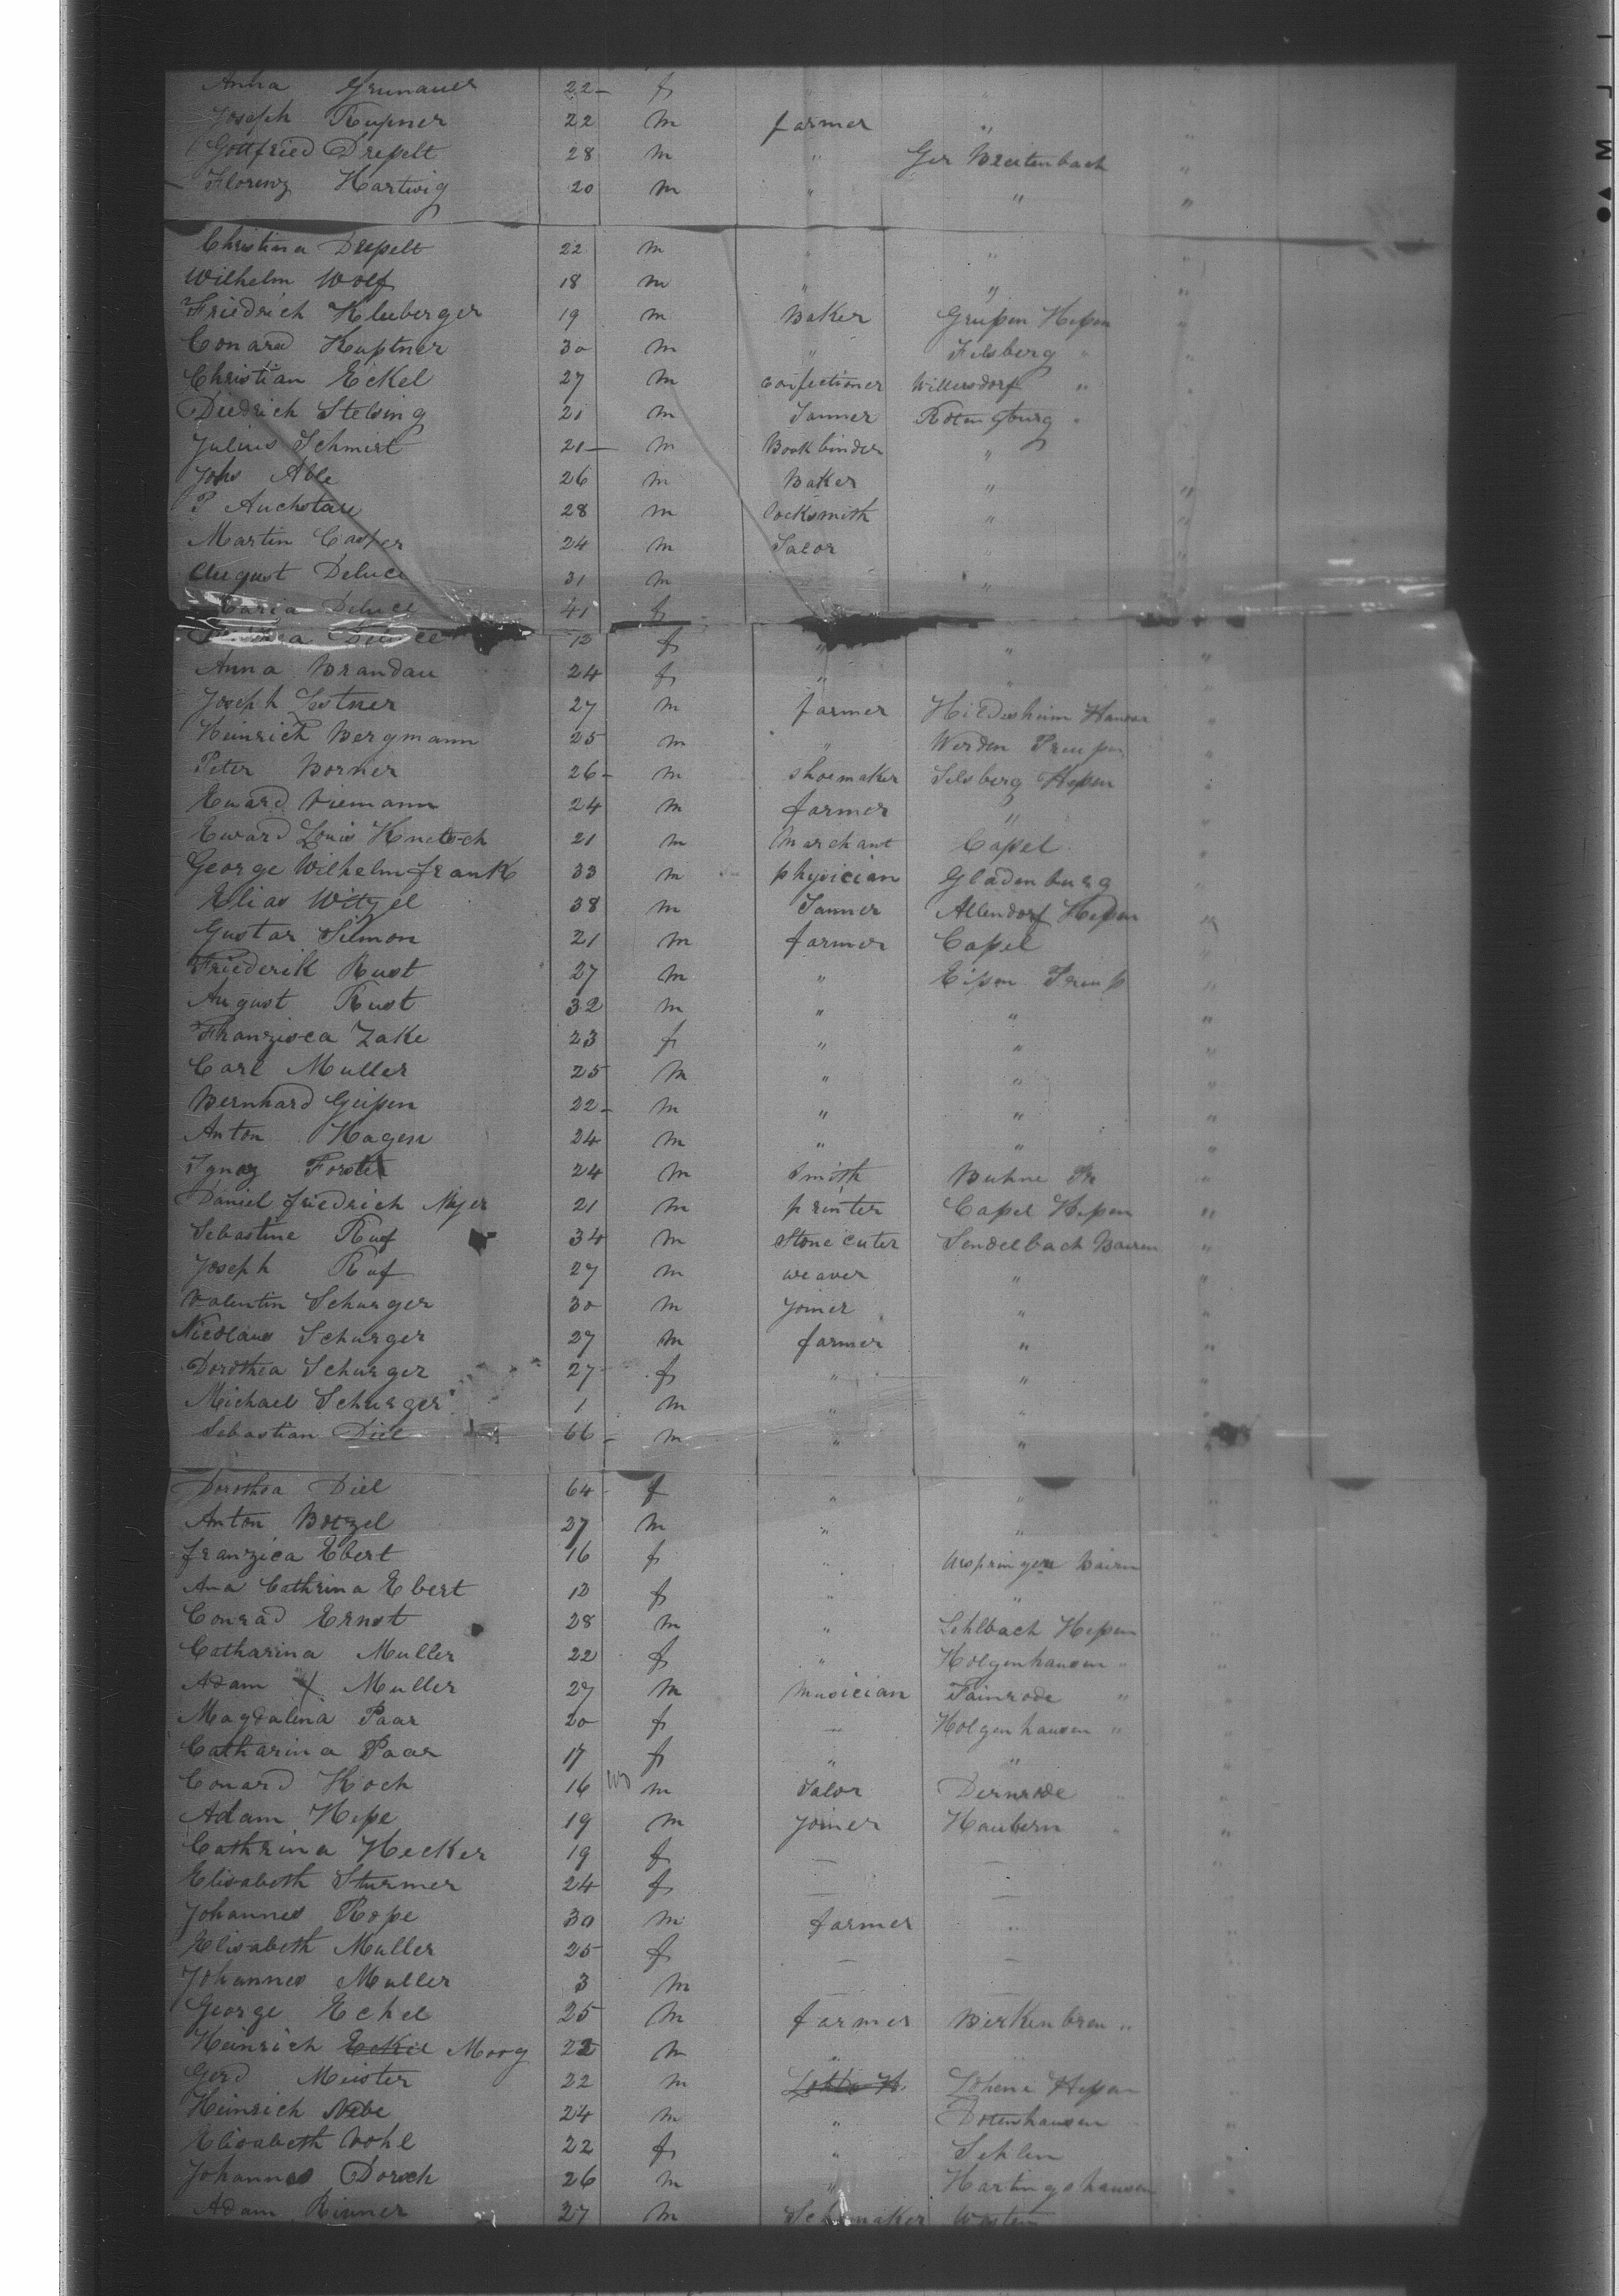 Anna Grunauer 22 f " "
Joseph Rupner 22 m farmer " "
Gottfried Drepelt 28 m " Ger Breitenbach "
Florenz Hartwig 20 m " " "
Christina Drepelt 22 m " " "
Wilhelm Wolf 18 m " " "
Friedrich Kleeberger 19 m Baker Grußen Heßen "
Conard Kuptner 30 m " Felsberg " "
Christian Eckel 27 m Confectioner Willersdorf "
Diedrich Stelsing 21 m Tanner Rotingburg "
Julius Schmidt 21 m Bookbinder "
Johs Able 26 m Baker " "
P Auchstare 28 m Locksmith " "
Martin Casper 24 m Talor " "
August Deluce 31 m " "
Maria Deluce 41 f
Deluce 12 f " " "
Anna Brandau 24 f " " "
Joseph Lestner 27 m farmer Hildesheim Hanover "
Heinrich Bergmann 25 m " Werden Preußen "
Peter Borner 26 m Shoemaker Felsberg Heßen "
Eward Niemann 24 m farmer " "
Eward Louis Knetsch 21 m Marchant Caßel "
George Wilhelm frank 33 m physician Gladenburg "
Elias Witzel 38 m Tanner Allendorf Heßen "
Gustav Silmon 21 m farmer Caßel "
Friederik Rust 27 m " Eißen Preuß "
August Rust 32 m " " "
Franzisca Zake 23 f " " "
Carl Muller 25 m " " "
Bernhard Geißen 22 m " " "
Anton Hagen 24 m " " "
Ignaz Forster 24 m Smith Buhne Pr "
Daniel friedrich Mejer 21 m printer Caßel Heßen "
Sebastine Ruf 34 m Stonecuter Sendelbach Bairen "
Joseph Ruf 27 m weaver " "
Valentin Schurger 30 m Joiner " "
Nicolaus Schurger 27 m farmer " "
Dorothea Schurger 27 f " " "
Michael Schurger 1 m " " "
Sebastian Diel 66 m " "
Dorothea Diel 64 f " " "
Anton Botzel 27 m " "
franzica Ebert 16 f " Urspringen Bairn
Ana Cathrina Ebert 12 f " "
Conrad Ernst 28 m " Sehlbach Heßen "
Catharina Muller 22 f " Holgenhausen " "
Adam Muller 27 m Musician Fainrode " "
Magdalena Paar 20 f — Holgenhausen " "
Catharina Paar 17 f " " "
Conard Koch 16 m Talor Dernrode " "
Adam Heße 19 m Joiner Haubern " "
Cathrina Hecker 19 f — — "
Elisabeth Sturmer 24 f — —
Johannes Rope 30 m farmer " "
Elisabeth Muller 25 f — — "
Johannes Muller 3 m —
George Echel 25 m farmer Birkenbren " "
Heinrich Eckel Moog 22 m " "
Gerd Meister 22 m Lohene Heßen
Heinrich Nebe 24 m " Dotenhausen "
Elisabeth Vohl 22 f " Sehlen "
Johannes Dorsch 26 m " Hartingshausen "
Adam Rinner 27 m Schumaker